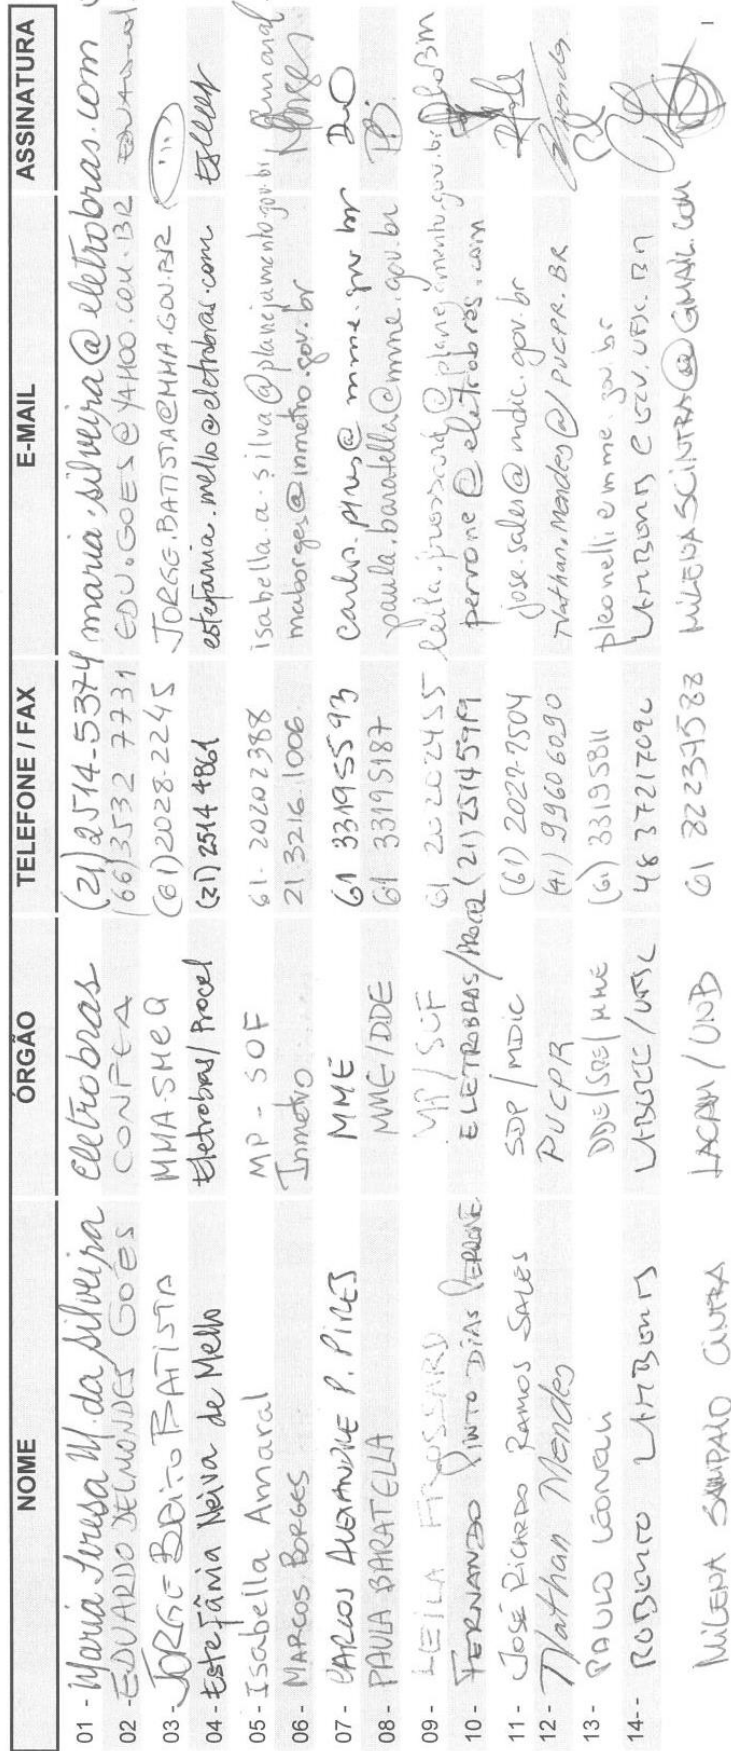 NOME ÓRGÃO TELEFONE / FAX E-MAIL ASSINATURA
01 - Maria Teresa M. da Silveira Eletrobras (21) 2514-5374 maria.silveira@eletrobras.com
02 - EDUARDO DELMONDES GOES CONFEA (66) 3532 7731 EDU.GOES@YAHOO.COM.BR
03 - JORGE BATISTA MMA-SMCQ (61) 2028-2245 JORGE.BATISTA@MMA.GOV.BR
04 - Estefânia Neiva de Mello Eletrobras/Procel (21) 2514 4861 estefania.mello@eletrobras.com
05 - Isabella Amaral MP - SOF 61. 20202388 isabella.a.silva@planejamento.gov.br Amaral
06 - MARCOS BORGES Inmetro 21 3216.1006 maborges@inmetro.gov.br MBorges
07 - CARLOS ALEXANDRE P. PIRES MME 61 33195593 carlos.pires@mme.gov.br
08 - PAULA BARATELLA MME/DDE 61 33195187 paula.baratella@mme.gov.br PB.
09 - LEILA FROSSARD MP/SOF 61 20202455 leila.frossard@planejamento.gov.br
10 - FERNANDO PINTO DIAS PERRONE ELETROBRAS/PROCEL (21) 25145919 perrone@eletrobras.com
11 - JOSÉ RICARDO RAMOS SALES SDP / MDIC (61) 2027-7504 jose.sales@mdic.gov.br
12 - Nathan Mendes PUCPR (41) 99606090 Nathan.Mendes@PUCPR.BR NMendes
13 - PAULO LEONELLI DDE/SPE/MME (61) 33195811 pleonelli@mme.gov.br
14-- ROBERTO LAMBERTS LABEEE/UFSC 48 37217092 LAMBERTS@ECV.UFSC.BR
MILENA SAMPAIO CINTRA LACAM/UNB 61 82237588 MILENASCINTRA@GMAIL.COM
1